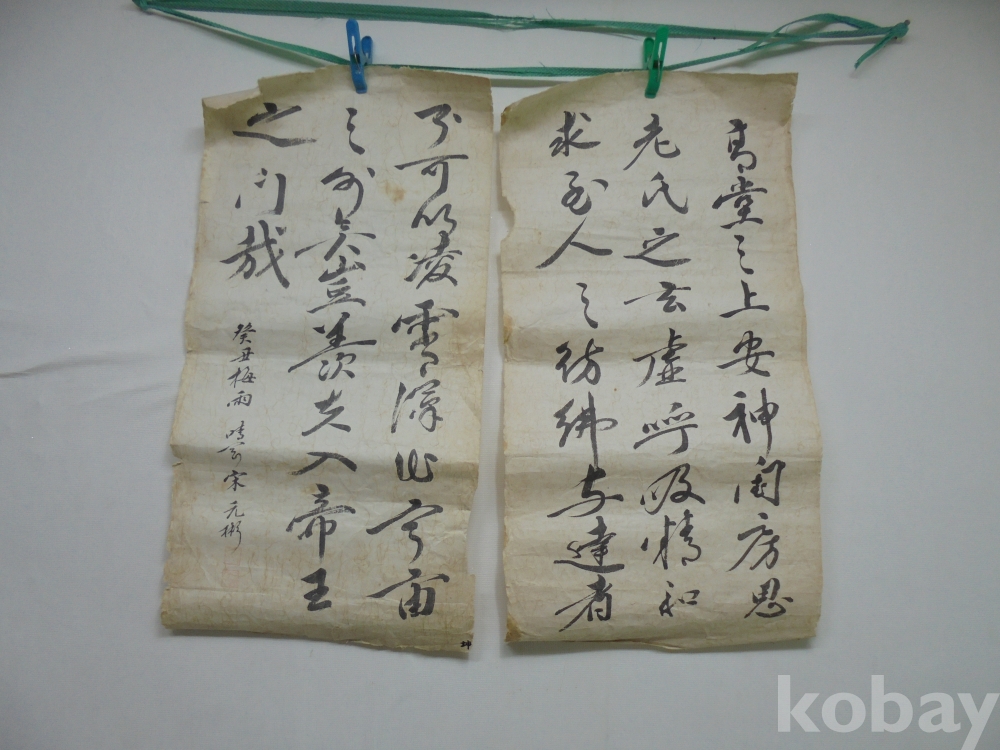 高堂之上安神閨房思
老氏之玄虛呼吸精和
求至人之彷彿与達者
則可以凌霄漢出宇宙
之外矣豈羨夫入帝王
之門哉
癸丑梅雨 宋元彬
kobay